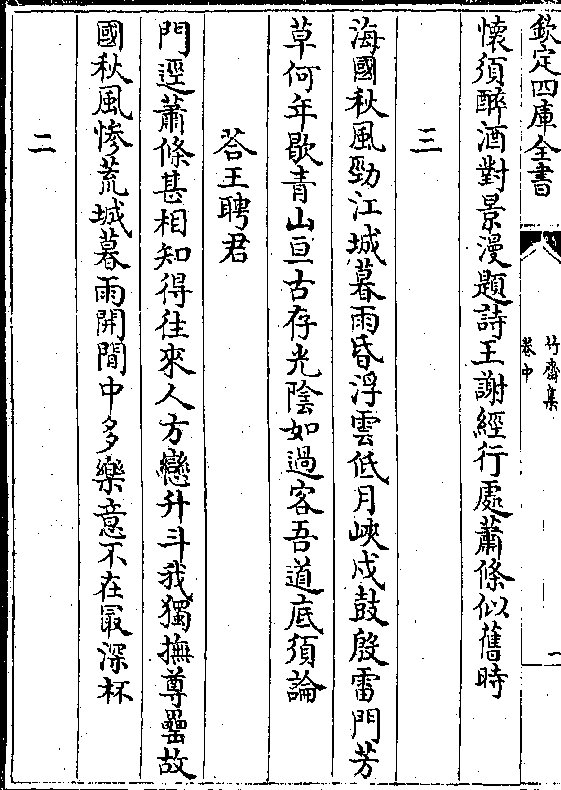 欽定四庫全書
竹齋集
卷中
二
懷須醉酒對景漫題詩王謝經行處蕭條似舊時
三
海國秋風勁江城暮雨昏浮雲低月峽戍鼓殷雷門芳
草何年歇青山亘古存光陰如過客吾道底須論
荅王聘君
門逕蕭條甚相知得往來人方戀升斗我獨撫尊罍故
國秋風慘荒城暮雨開閒中多樂意不在冣深杯
二